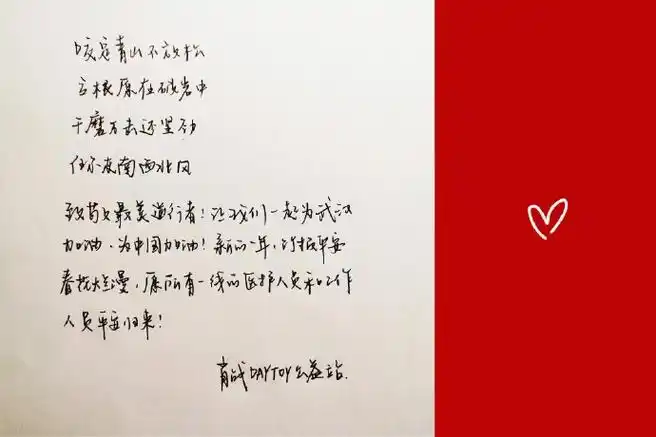 咬定青山不放松
立根原在破岩中
千磨万击还坚劲
任尔东南西北风
致敬最美逆行者！让我们一起为武汉
加油，为中国加油！新的一年，竹报平安
春花烂漫，愿所有一线的医护人员和工作
人员平安归来！
肖战DAYTOY公益站.